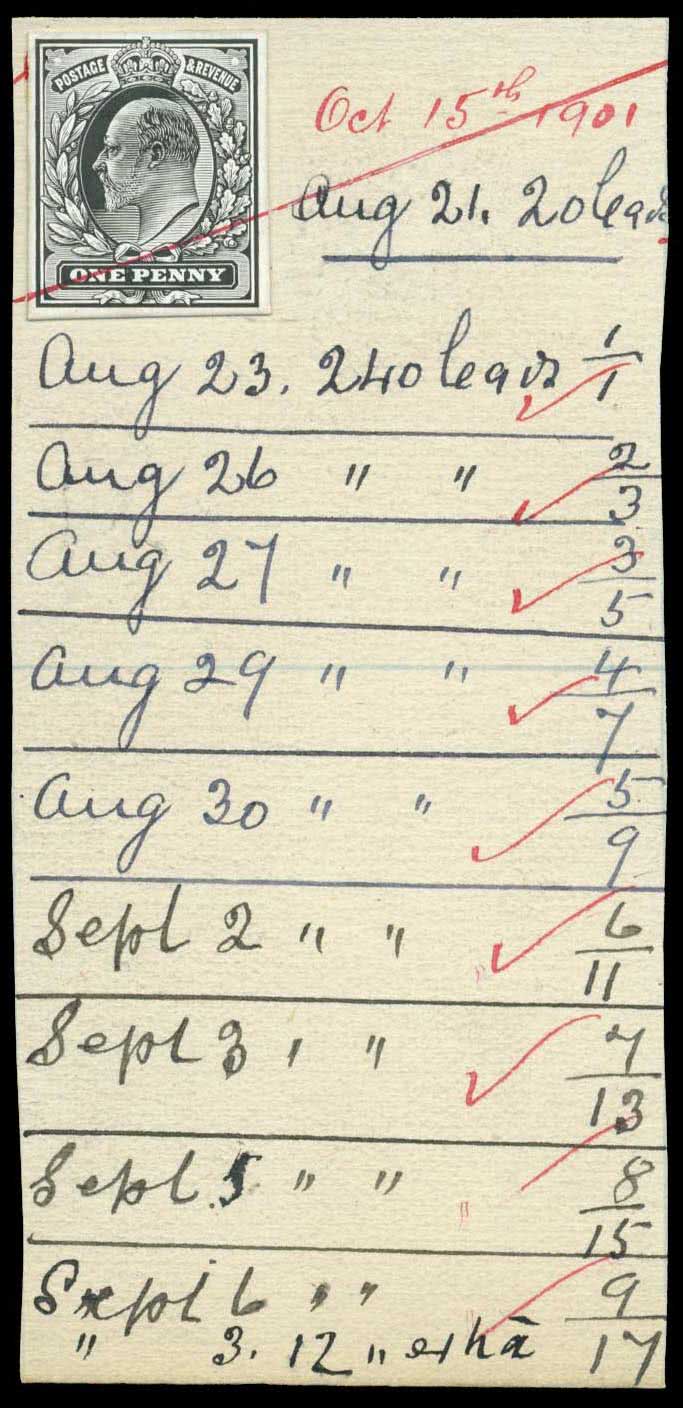 POSTAGE & REVENUE
ONE PENNY
Oct 15th 1901
Aug 21. 20 leads
Aug 23. 240 leads 1/1
Aug 26 " " 2/3
Aug 27 " " 3/5
Aug 29 " " 4/7
Aug 30 " " 5/9
Sept 2 " " 6/11
Sept 3 " " 7/13
Sept 5 " " 8/15
Sept 6 " " 9/17
" 3. 12 "